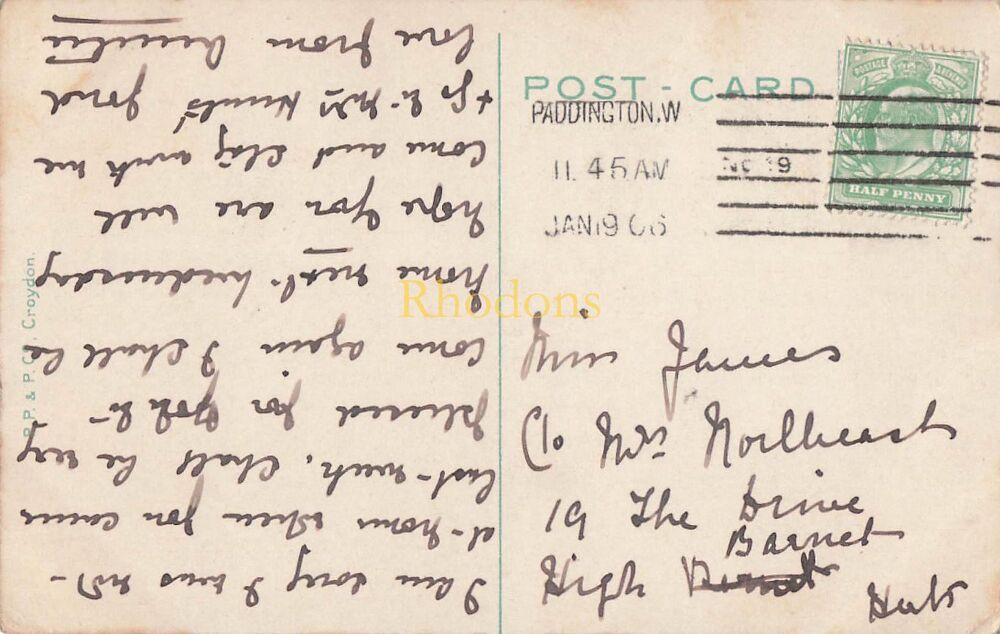 POST - CARD
PADDINGTON.W
11.45 AM
JAN 19 06
HALF PENNY
POSTAGE REVENUE
Miss James
C/o Mrs Northeast
19 The Drive
Barnet
High
Herts
I am sorry I was not
at home when you came
last week. Shall be very
pleased for you to
come again I shall be
home next Wednesday
hope you are well
come and stay with me
+ go to Mrs fond
love from
P. & P. Croydon.
Rhodons